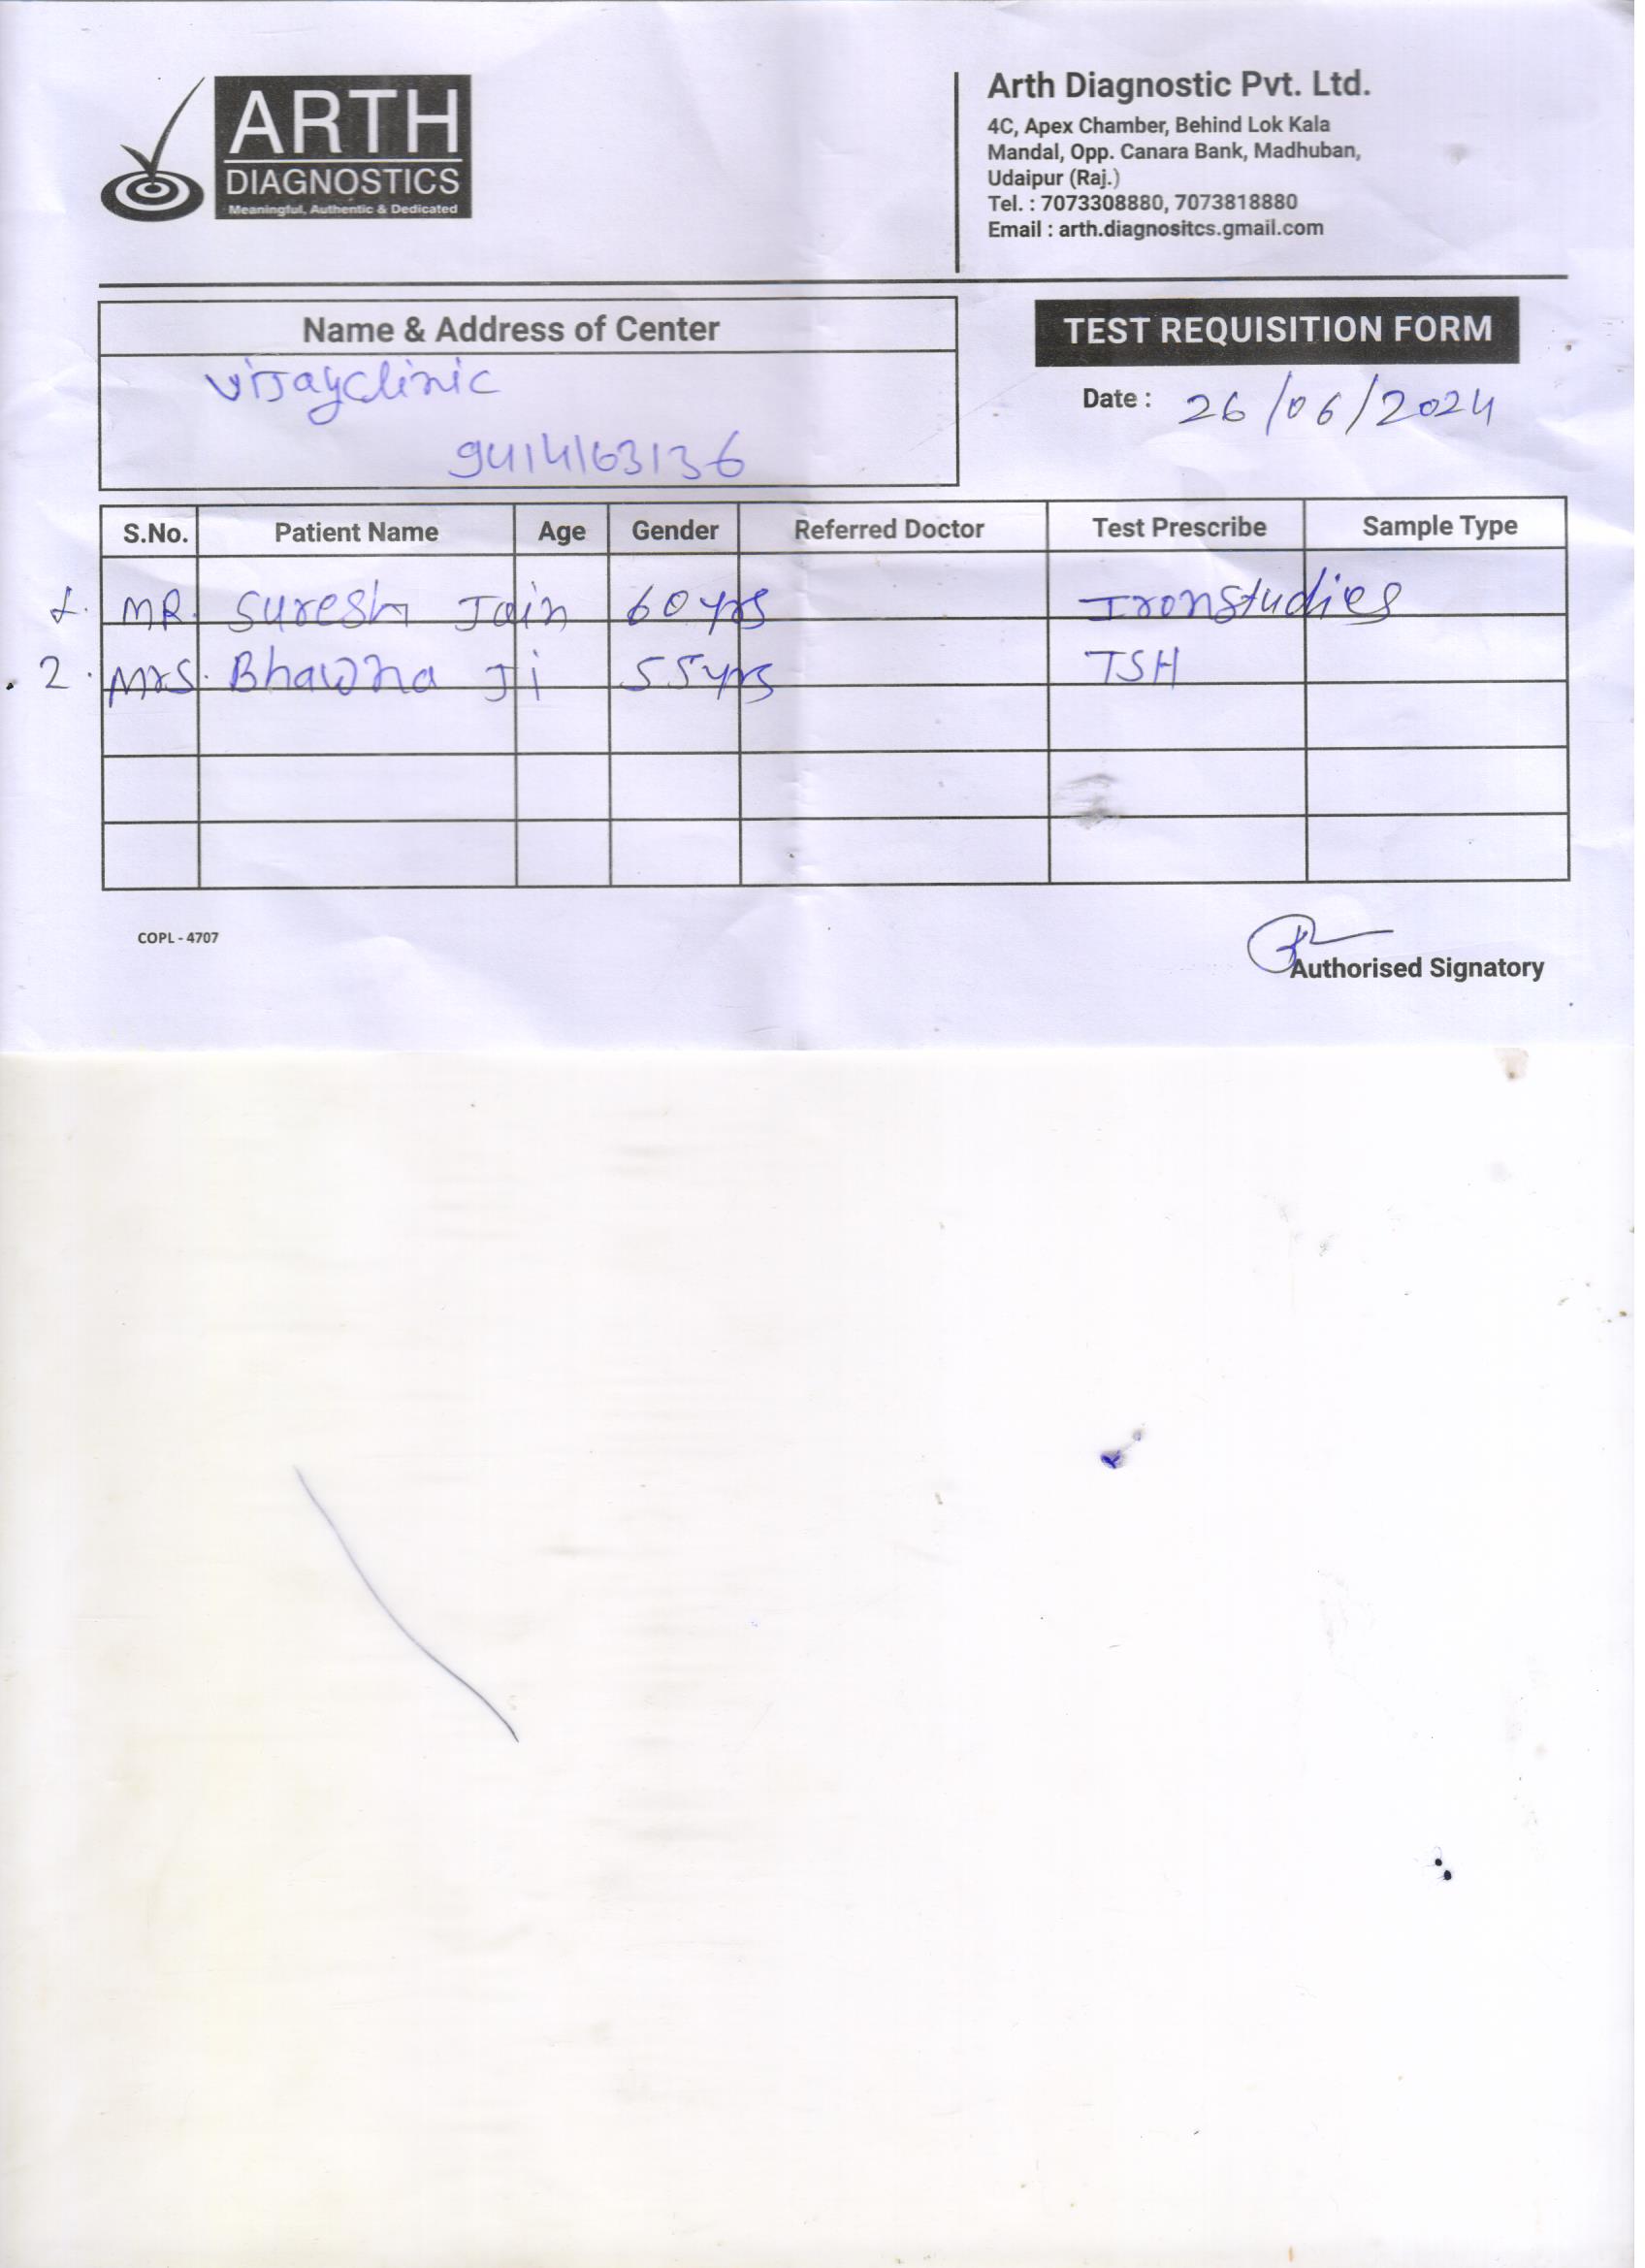 ARTH
DIAGNOSTICS
Meaningful, Authentic & Dedicated
Arth Diagnostic Pvt. Ltd.
4C, Apex Chamber, Behind Lok Kala
Mandal, Opp. Canara Bank, Madhuban,
Udaipur (Raj.)
Tel. : 7073308880, 7073818880
Email : arth.diagnositcs.gmail.com
Name & Address of Center
TEST REQUISITION FORM
Vijayclinic
9414163136
Date : 26/06/2024
S.No. Patient Name Age Gender Referred Doctor Test Prescribe Sample Type
1. MR. Suresh Jain 60yrs Ironstudies
2. Mrs. Bhawna Ji 55yrs TSH
COPL - 4707
Authorised Signatory